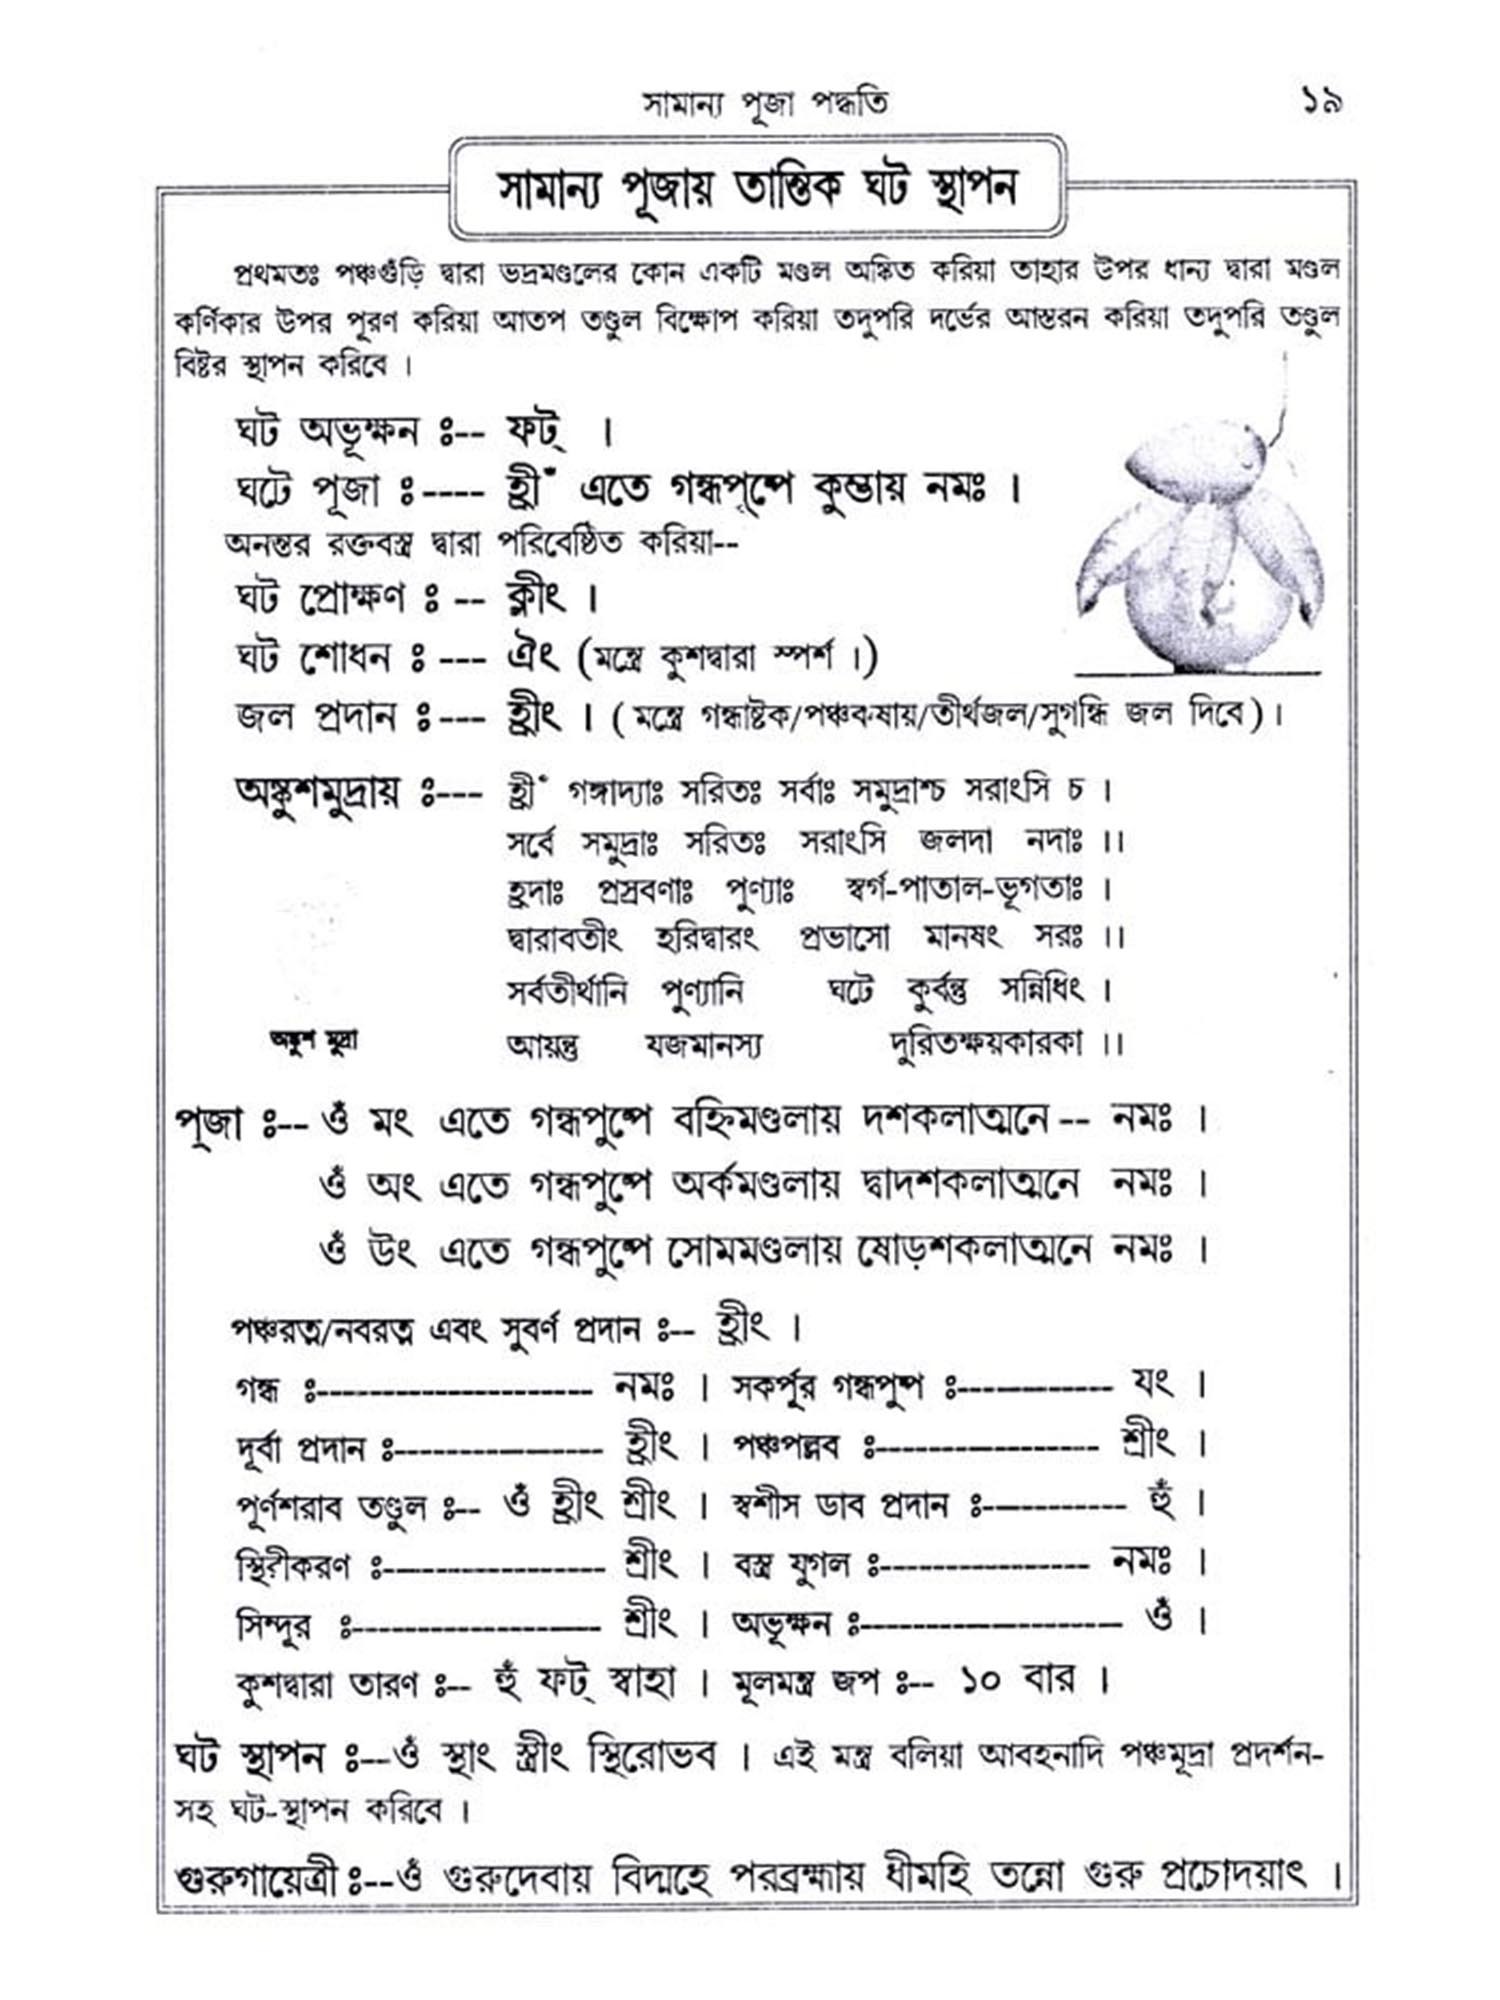 সামান্য পূজা পদ্ধতি ১৯
সামান্য পূজায় তান্ত্রিক ঘট স্থাপন
প্রথমতঃ পঞ্চগুঁড়ি দ্বারা ভদ্রমণ্ডলের কোন একটি মণ্ডল অঙ্কিত করিয়া তাহার উপর ধান্য দ্বারা মণ্ডল
কর্ণিকার উপর পূরণ করিয়া আতপ তণ্ডুল বিক্ষোপ করিয়া তদুপরি দর্ভের আস্তরন করিয়া তদুপরি তণ্ডুল
বিষ্টর স্থাপন করিবে ।
ঘট অভূক্ষন ঃ-- ফট্ ।
ঘটে পূজা ঃ---- হ্রীঁ এতে গন্ধপুষ্পে কুম্ভায় নমঃ ।
অনন্তর রক্তবস্ত্র দ্বারা পরিবেষ্ঠিত করিয়া--
ঘট প্রোক্ষণ ঃ -- ক্লীং ।
ঘট শোধন ঃ --- ঐং (মন্ত্রে কুশদ্বারা স্পর্শ ।)
জল প্রদান ঃ--- হ্রীং । ( মন্ত্রে গন্ধাষ্টক/পঞ্চকষায়/তীর্থজল/সুগন্ধি জল দিবে) ।
অঙ্কুশমুদ্রায় ঃ--- হ্রীঁ গঙ্গাদ্যাঃ সরিতঃ সর্বাঃ সমুদ্রাশ্চ সরাংসি চ ।
সর্বে সমুদ্রাঃ সরিতঃ সরাংসি জলদা নদাঃ ।।
হ্রদাঃ প্রস্রবণাঃ পুণ্যাঃ স্বর্গ-পাতাল-ভূগতাঃ ।
দ্বারাবতীং হরিদ্বারং প্রভাসো মানষং সরঃ ।।
সর্বতীর্থানি পুণ্যানি ঘটে কুর্বন্তু সন্নিধিং ।
অঙ্কুশ মুদ্রা আয়ন্তু যজমানস্য দুরিতক্ষয়কারকা ।।
পূজা ঃ-- ওঁ মং এতে গন্ধপুষ্পে বহ্নিমণ্ডলায় দশকলাত্মনে -- নমঃ ।
ওঁ অং এতে গন্ধপুষ্পে অর্কমণ্ডলায় দ্বাদশকলাত্মনে নমঃ ।
ওঁ উং এতে গন্ধপুষ্পে সোমমণ্ডলায় ষোড়শকলাত্মনে নমঃ ।
পঞ্চরত্ন/নবরত্ন এবং সুবর্ণ প্রদান ঃ-- হ্রীং ।
গন্ধ ঃ--------------------- নমঃ । সকর্পূর গন্ধপুষ্প ঃ------------ যং ।
দূর্বা প্রদান ঃ---------------- হ্রীং । পঞ্চপল্লব ঃ----------------- শ্রীং ।
পূর্ণশরাব তণ্ডুল ঃ-- ওঁ হ্রীং শ্রীং । স্বশীস ডাব প্রদান ঃ----------- হুঁ ।
স্থিরীকরণ ঃ----------------- শ্রীং । বস্ত্র যুগল ঃ---------------- নমঃ ।
সিন্দূর ঃ------------------- শ্রীং । অভূক্ষন ঃ-------------------- ওঁ ।
কুশদ্বারা তারণ ঃ-- হুঁ ফট্ স্বাহা । মূলমন্ত্র জপ ঃ-- ১০ বার ।
ঘট স্থাপন ঃ--ওঁ স্থাং স্ত্রীং স্থিরোভব । এই মন্ত্র বলিয়া আবহনাদি পঞ্চমূদ্রা প্রদর্শন-
সহ ঘট-স্থাপন করিবে ।
গুরুগায়েত্রী ঃ--ওঁ গুরুদেবায় বিদ্মহে পরব্রহ্মায় ধীমহি তন্নো গুরু প্রচোদয়াৎ ।